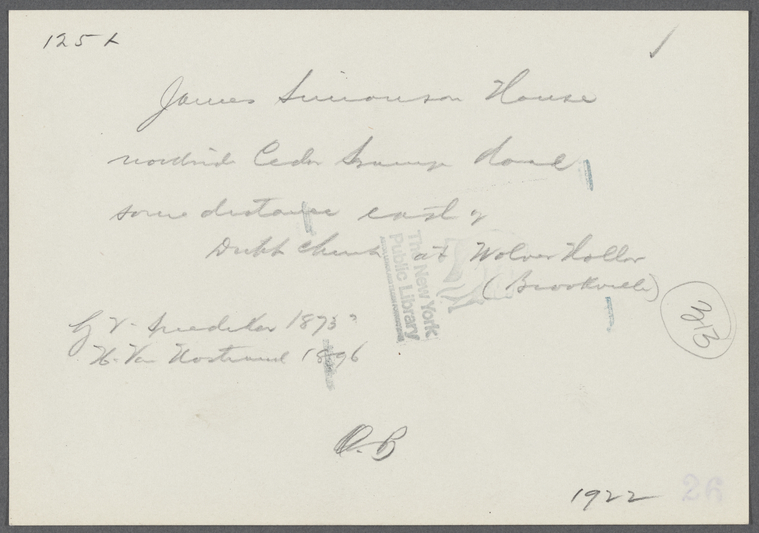 125
James Simonson House
northside Cedar Swamp Road
some distance east of
Dutch Church at Wolver Hollow
(Brookville)
The New York
Public Library
312
G V. Snedeker 1873?
H. Van Nostrand 1896
O.B
1922
26